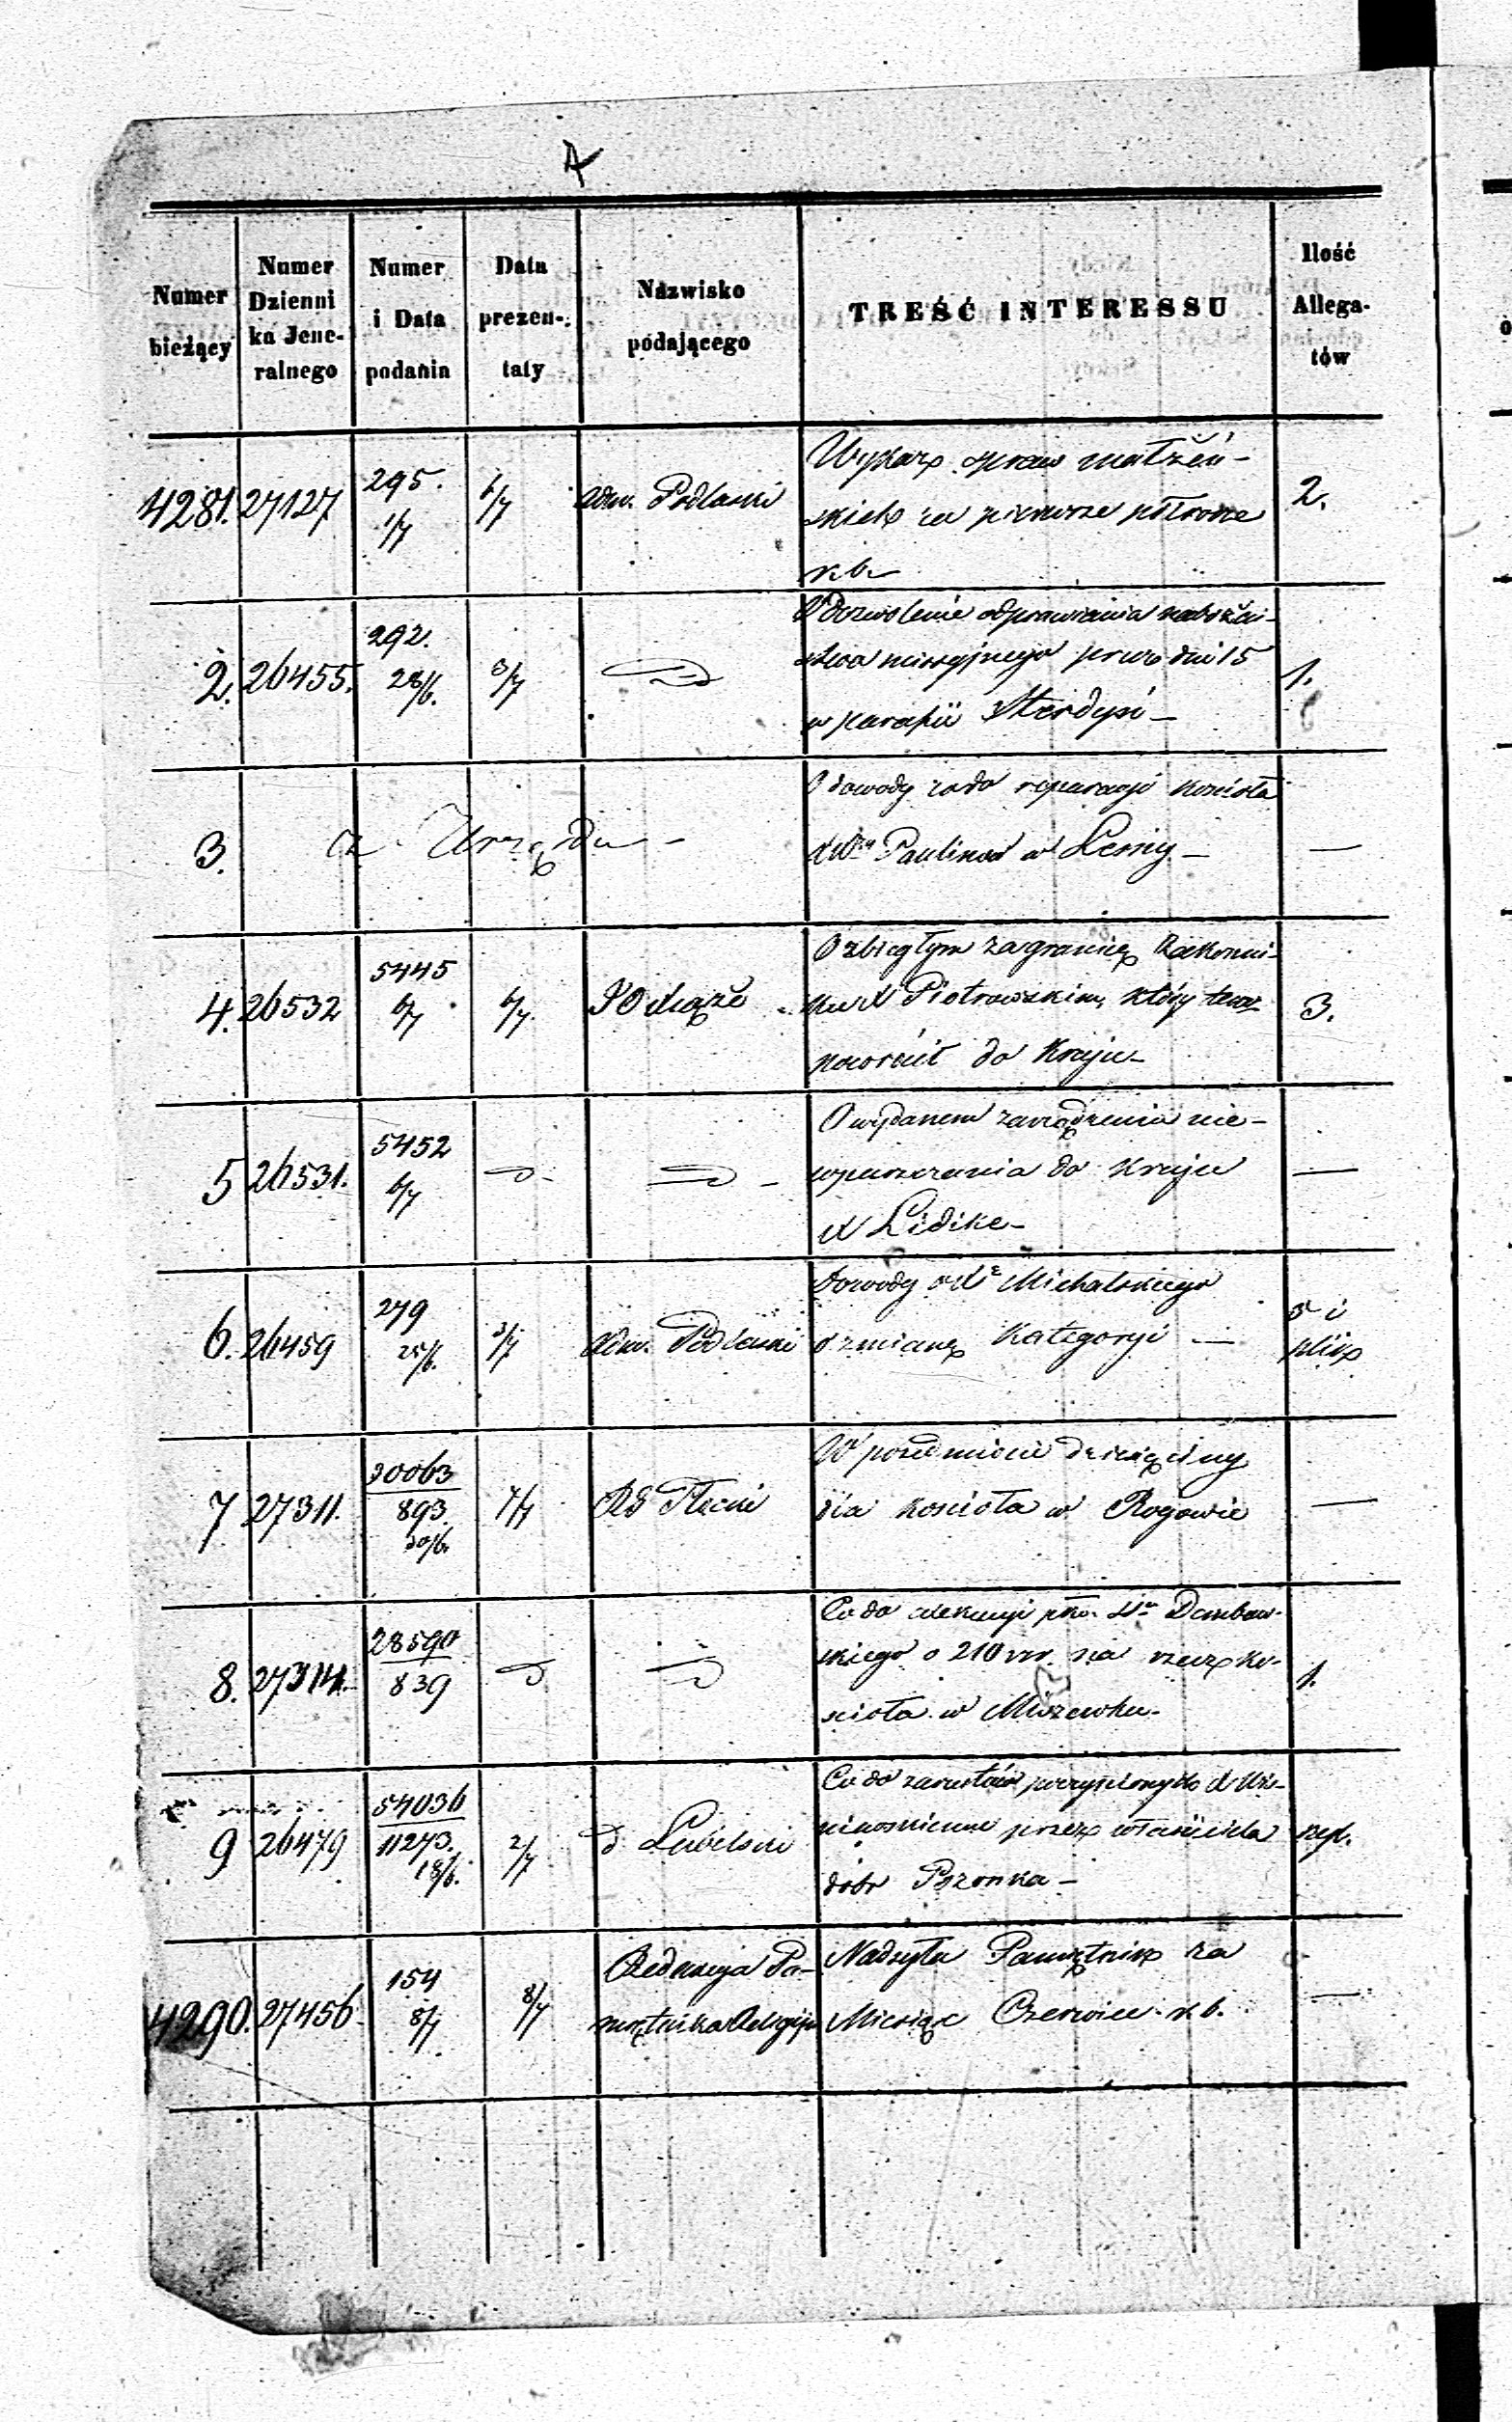 A
Numer bieżący
Numer Dzienni ka Jene- ralnego
Numer i Data podania
Data prezen- taty
Nazwisko podającego
TREŚĆ INTERESSU
Ilość Allega- tów
4281. 27127 295. 1/7 6/7 Adm. Podlaski
Wykaz spraw małżeń-
skich za pierwsze półrocze
r.b.
2.
2. 26455. 292. 28/6. 3/7
odprawiania nabożeń-
stwa missyjnego przez dni 15
w parafii Sterdyń
1.
3. z Urzędu
O dowody co do reparacyi kościoła
Paulinów w Leśny
—
4. 26532 5445 6/7 6/7. JO Książe
O zbiegłym zagranicę Zakonni-
ku X Piotrowskim, który teraz
powrócił do Kraju
3.
5 26531. 5452 6/7
O wydanem zarządzeniu nie-
wpuszczania do Kraju
X Lidike
—
6. 26459 279 25/6. 3/7 Adm. Podlaski
Dowody Michalskiego
o zmianę Kategoryi —
5 i
plik
7 27311. 30063 893. 30/6. 7/7 RG Płocki
W przedmiocie dziesięciny
dla kościoła w Rogowie
—
8. 27314. 28590 839
Co do exekucyi Dembow-
skiego o 210 na rzecz ko-
ścioła w Miszewku
1.
9 26479 54036 11273. 18/6. 2/7 d Lubelski
Co do zarzutów
przez właściciela
dóbr Pszonka
4290. 27456 154 8/7 8/7
Redakcyja Pa-
miętnika Religijn
Nadsyła Pamiętnik za
Miesiąc Czerwiec r.b.
—